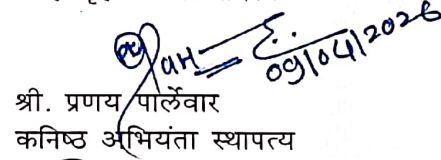 09/04/2026
श्री. प्रणय पार्लेवार
कनिष्ठ अभियंता स्थापत्य